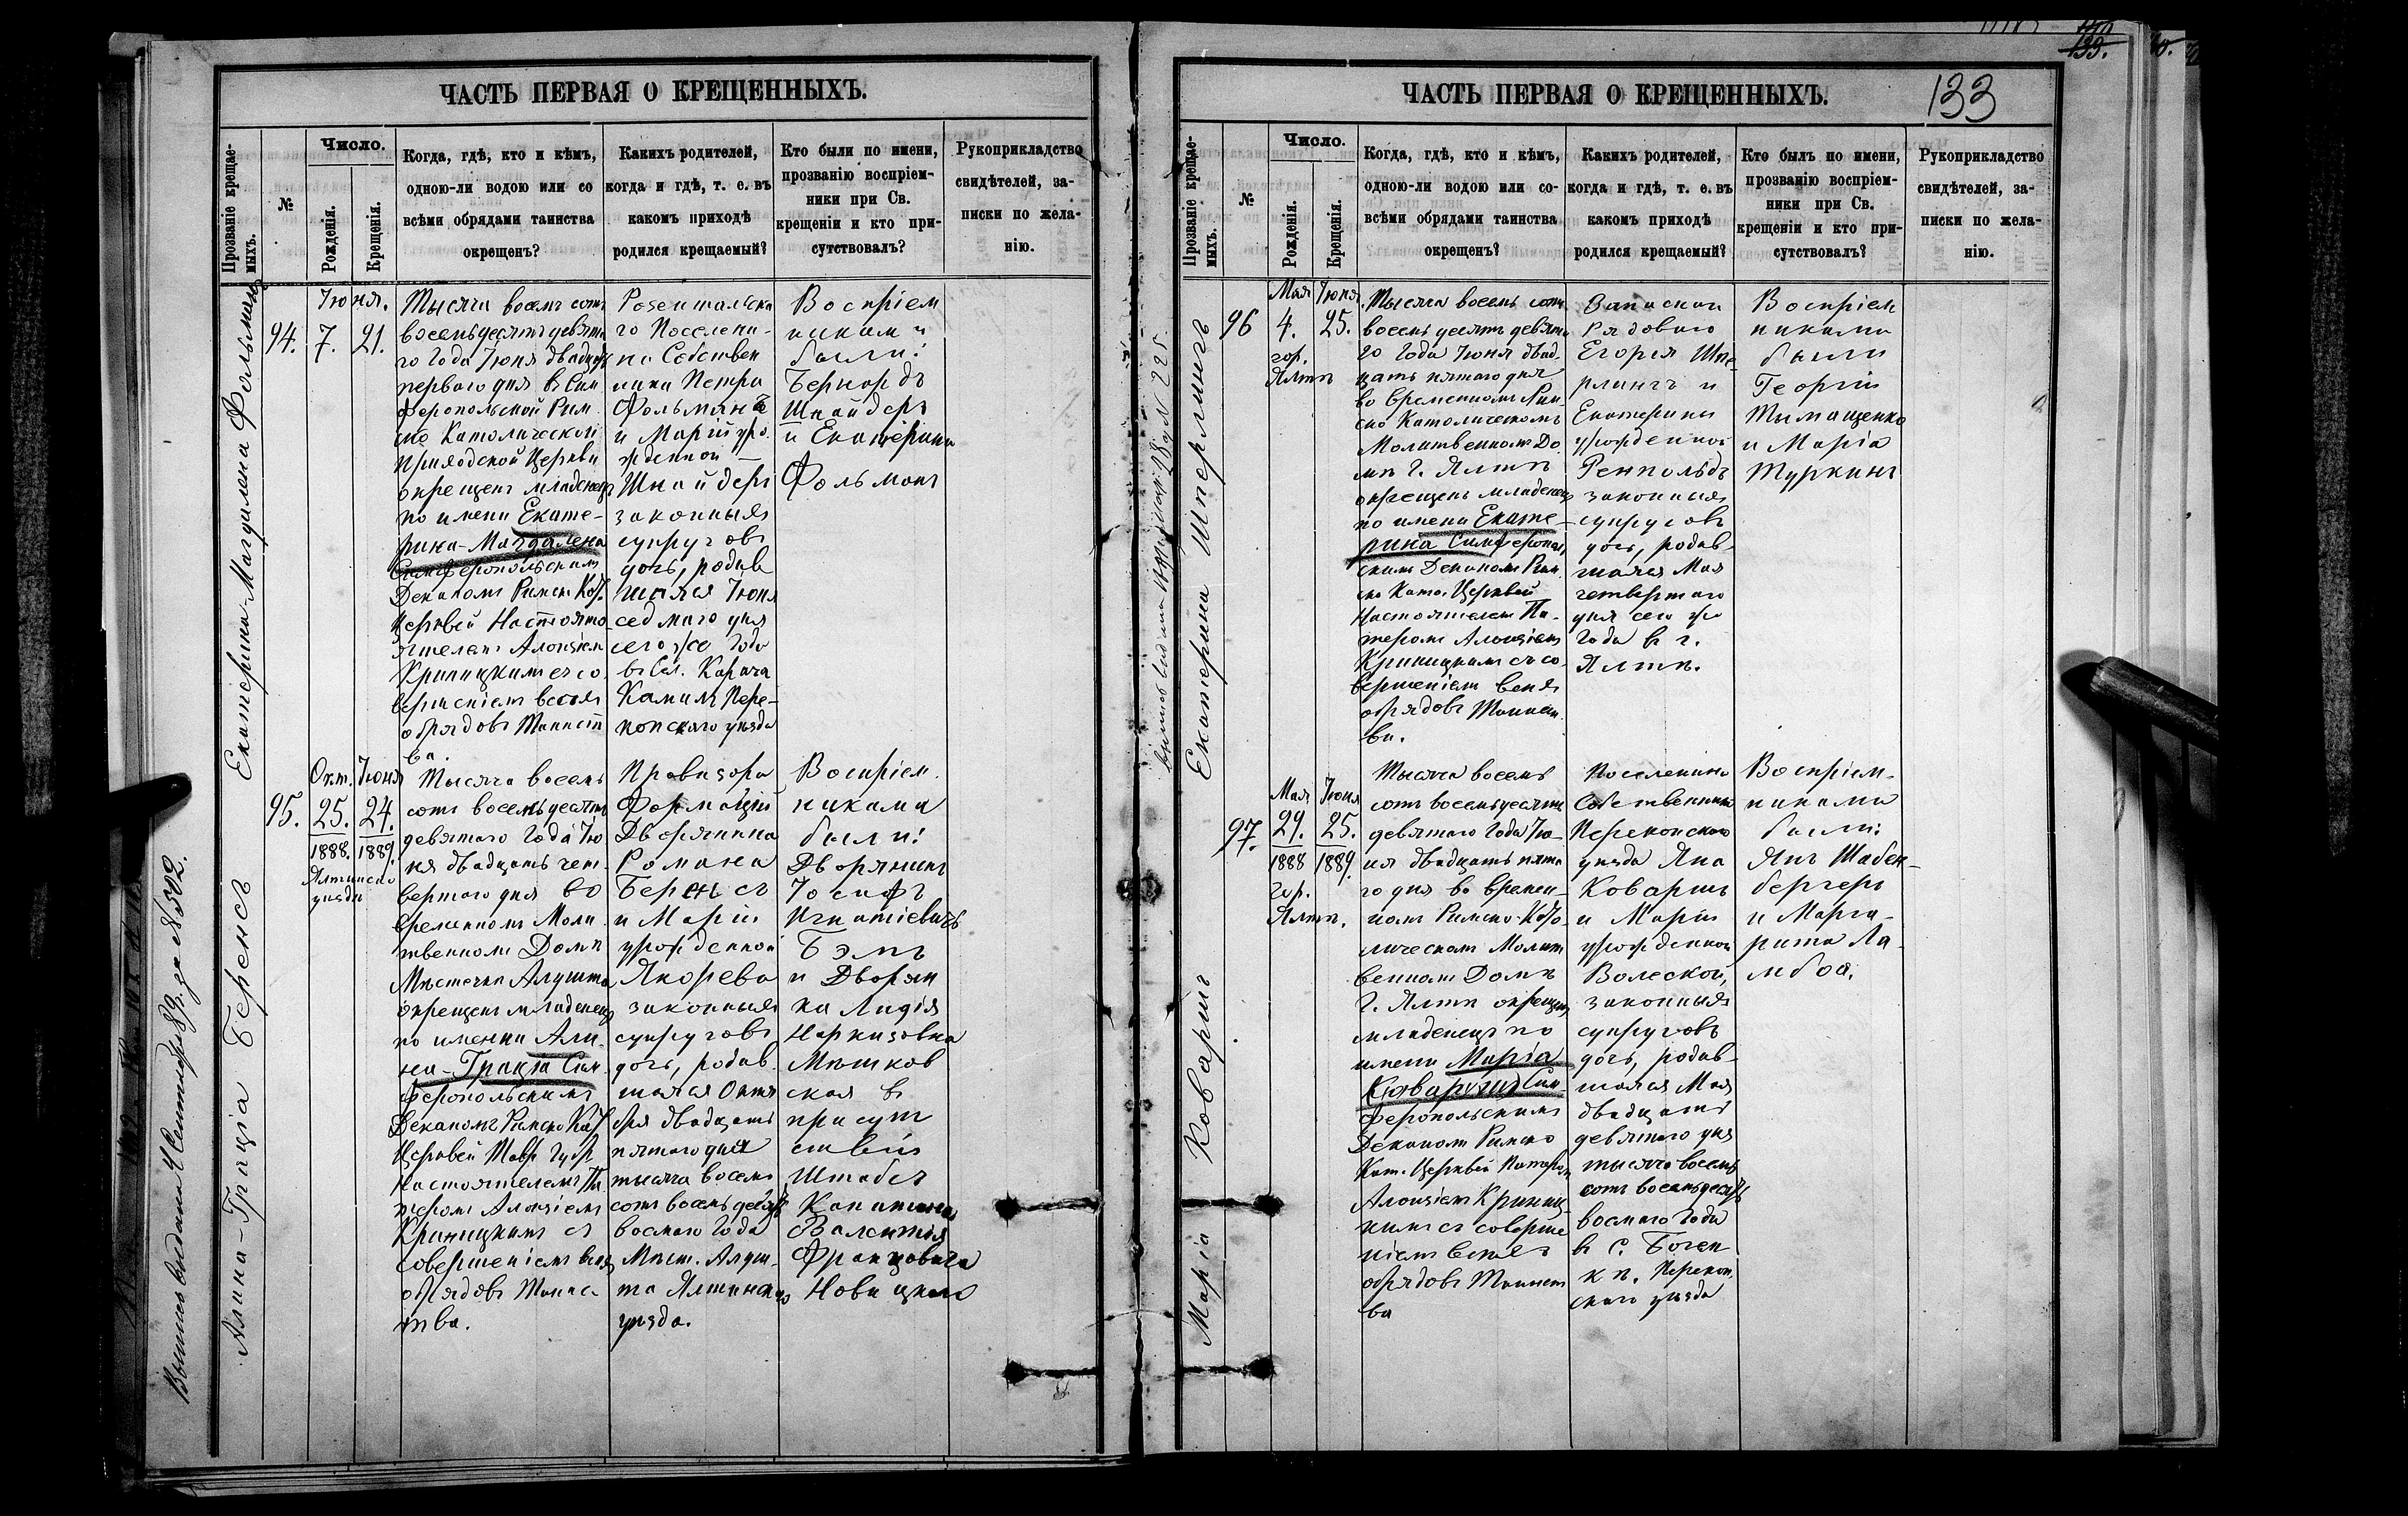 ЧАСТЬ ПЕРВАЯ О КРЕЩЕННЫХЪ.
Прозваніе крещае-
мыхъ.
№
Число.
Рожденія.
Крещенія.
Когда, гдѣ, кто и кѣмъ,
одною-ли водою или со
всѣми обрядами таинства
окрещенъ?
Какихъ родителей,
когда и гдѣ, т. е. въ
какомъ приходѣ
родился крещаемый?
Кто были по имени,
прозванію воспріем-
ники при Св.
крещеніи и кто при-
сутствовалъ?
Рукоприкладство
свидѣтелей, за-
писки по жела-
нію.
Екатерина-Магдалена Фольманъ
94.
Іюня.
7. 21.
Тысяча восемь сотъ
восемьдесятъ девята
го года Іюня двадцать
перваго дня въ Сим
феропольской Рим
ско Католической
Приходской Церкви
окрещенъ младенецъ
по имени Екате-
рина-Магдалена
Симферопольскимъ
Деканомъ Римско Кат.
Церквей Настоято
ятелемъ Алоизіем
Криницкимъ съ со
вершеніемъ всѣхъ
обрядовъ Таинст
ва.
Розентальска
го Поселяни-
на Собствен
ника Петра
Фольманъ
и Маріи уро
жденной —
Шнайдеръ
законныхъ
супруговъ
дочь, родив
шаяся Іюня
седмаго дня
сего же года
въ Сел. Карача
Канлъ Пере-
копскаго уѣзда
Воспріем
никам и
были:
Бернардъ
Шнайдеръ
и Екатерина
Фольманъ
Алина-Граціа Беренсъ
95.
Окт. Іюня
25. 24.
1888. 1889.
Ялтинско
уѣзда
Тысяча восемь
сотъ восемьдесятъ
девятаго года Ію
ня двадцать чет
вертаго дня во
временномъ Моли
твенномъ Домѣ
Мѣстечка Алушта
окрещенъ младенецъ
по имени Али-
на-Граціа Сим
феропольскимъ
Деканомъ Римско Кат
Церквей Тавр. Губ.
Настоятелемъ Па
теромъ Алоизіемъ
Криницкимъ съ
совершеніемъ всѣхъ
обрядовъ Таинс
тва.
Провизора
Формацій
Дворянина
Романа
Беренсъ
и Маріи
урожденной
Якорева
законныхъ
супруговъ
дочь, родив
шаяся Октя
бря двадцать
пятаго дня
тысяча восемь
сотъ восемьдесятъ
восмаго года
Мѣст. Алуш-
та Ялтинскаго
уѣзда.
Воспріем
никами
были!
Дворянинъ
Іосифъ
Игнатіевичъ
Бэмъ
и Дворян
ка Лидія
Наркизовна
Мѣшков
ская в
присут
ствіи
Штабсъ
Капитана
Валентія
Францовича
Новицкаго
Выпись выдана 4 Сентября 89 г. за № 502.
133
ЧАСТЬ ПЕРВАЯ О КРЕЩЕННЫХЪ.
133
Прозваніе крещае-
мыхъ.
№
Число.
Рожденія.
Крещенія.
Когда, гдѣ, кто и кѣмъ,
одною-ли водою или со-
всѣми обрядами таинства
окрещенъ?
Какихъ родителей,
когда и гдѣ, т. е. въ
какомъ приходѣ
родился крещаемый?
Кто былъ по имени,
прозванію воспріем-
ники при Св.
крещеніи и кто при-
сутствовалъ?
Рукоприкладство
свидѣтелей, за-
писки по жела-
нію.
Екатерина Шперлингъ
96
Мая Іюня
4. 25.
гор.
Ялтѣ
Тысяча восемь сотъ
восемьдесятъ девята
го года Іюня двад
цать пятаго дня
во временномъ Рим
ско Католическомъ
Молитвенномъ До
мѣ г. Ялтѣ
окрещенъ младенецъ
по имени Екате-
рина Симферополь
скимъ Деканомъ Рим
ско Катол. Церквей
Настоятелемъ Па-
теромъ Алоизіем
Криницкимъ съ со
вершеніем всѣхъ
обрядовъ Таинст
ва.
Запаснаи
Рядоваго
Егорія Шпе
рлингъ и
Екатерины
урожденной
Ренпольдъ
законныхъ
супруговъ
дочь, родив-
шаяся Мая
четвертаго
дня сего же
года въ г.
Ялтѣ.
Воспріем
никами
были
Георгій
Тымащенко
и Маріа
Туркинъ
Маріа Коваришъ
97.
Мая Іюня
29. 25.
1888 1889.
гор.
Ялтѣ.
Тысяча восемь
сотъ восемьдесятъ
девятаго года Ію-
ня двадцать пята
го дня во времен-
номъ Римско-Като
лическомъ Молит
венномъ Домѣ
г. Ялтѣ окрещенъ
младенецъ по
имени Маріа
Сим
феропольскимъ
Деканомъ Римско
Кат. Церквей Патеромъ
Алоизіемъ Криниц
кимъ съ соверше
ніемъ всѣхъ
обрядовъ Таинст
ва
Поселянина
Собственника
Перекопскаго
уѣзда Яна
Коваришъ
и Маріи
урожденной
Волеской,
законныхъ
супруговъ
дочь, родив-
шаяся Мая
двадцать
девятаго дня
тысяча восемь
сотъ восемьдесятъ
восмаго года
въ с. Боген
кѣ. Перекоп
скаго уѣзда
Воспріем-
никами
были:
Янъ Шабен-
бергеръ
и Марга-
рита Ла-
мбоа.